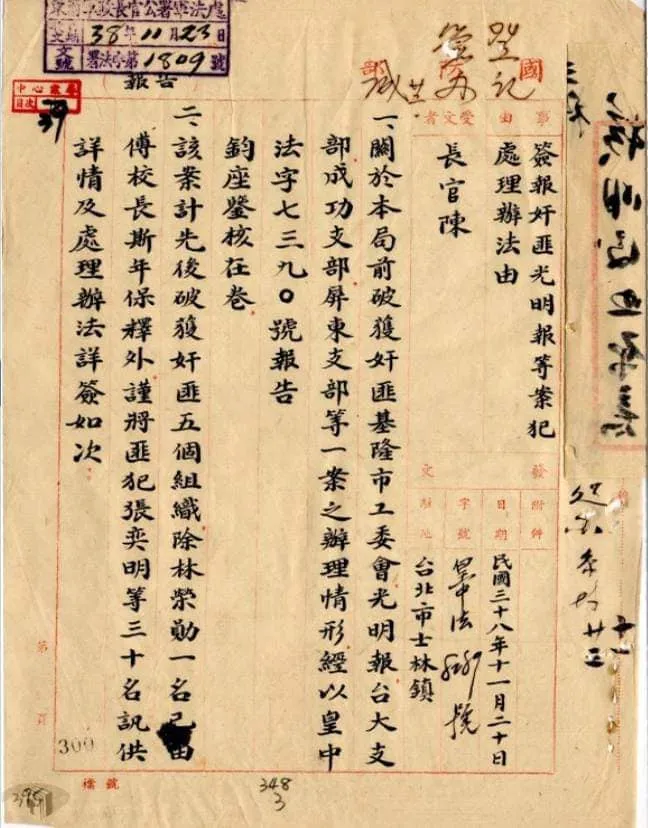 軍政長官公署軍法處
38年11月23日
文號 署法字第1809號
報告
中心處專
目次
39
登記
國防部
事由
簽報奸匪光明報等案犯
處理辦法由
受文者
長官陳
發文
附件
日期
民國三十八年十一月二十日
字號
駐地
台北市士林鎮
一、關於本局前破獲奸匪基隆市工委會光明報台大支
部成功支部屏東支部等一案之辦理情形經以皇中
法字七三九〇號報告
鈞座鑒核在卷
二、該案計先後破獲奸匪五個組織除林榮勛一名已由
傅校長斯年保釋外謹將匪犯張奕明等三十名訊供
詳情及處理辦法詳簽如次
第 頁
300
檔號
348
3
395